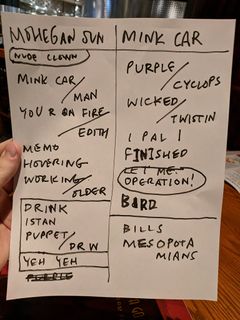 MOHEGAN SUN
NUDE CLOWN
MINK CAR/
MAN
YOU R ON FIRE/
EDITH
MEMO
HOVERING
WORKING/
OLDER
DRINK
ISTAN
PUPPET/
DRW
YEH YEH
MINK CAR
PURPLE/
CYCLOPS
WICKED/
TWISTIN
I PAL I
FINISHED
LET ME
OPERATION!
BIRD
BILLS
MESOPOTA
MIANS